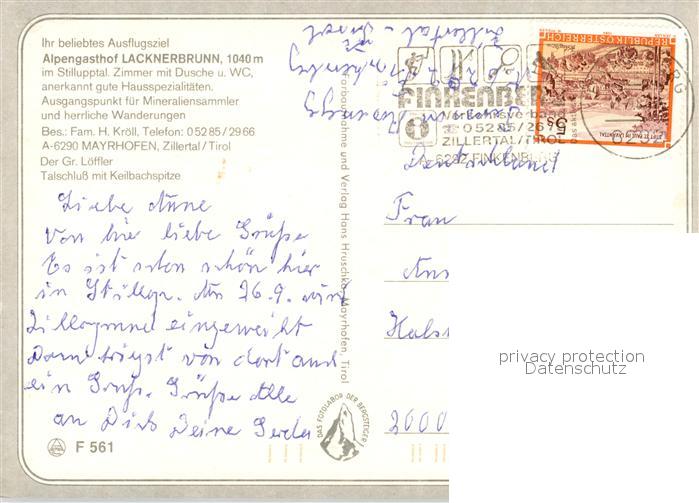 Ihr beliebtes Ausflugsziel
Alpengasthof LACKNERBRUNN, 1040 m
im Stillupptal. Zimmer mit Dusche u. WC,
anerkannt gute Hausspezialitäten.
Ausgangspunkt für Mineraliensammler
und herrliche Wanderungen
Bes.: Fam. H. Kröll, Telefon: 0 52 85 / 29 66
A-6290 MAYRHOFEN, Zillertal / Tirol
Der Gr. Löffler
Talschluß mit Keilbachspitze
Liebe Anne
Von hier liebe Grüße
Es ist schon schön hier
in Stillup. Am 26.9. wird
eingeweiht
Dann von dort auch
ein Gruß. Grüße Alle
an Dich Deine
F 561
DAS FOTOLABOR DER BERGSTEIGER
Farbaufnahme und Verlag Hans Hruschka, Mayrhofen, Tirol
Zillertal - Tirol
REPUBLIK ÖSTERREICH
S 5
STIFT ST. PAUL IM LAVANTTAL
FINKENBERG
Verkehrsverband
05285/2673
ZILLERTAL/TIROL
A-6292 FINKENBERG
Deutschland
Frau
2000
privacy protection
Datenschutz